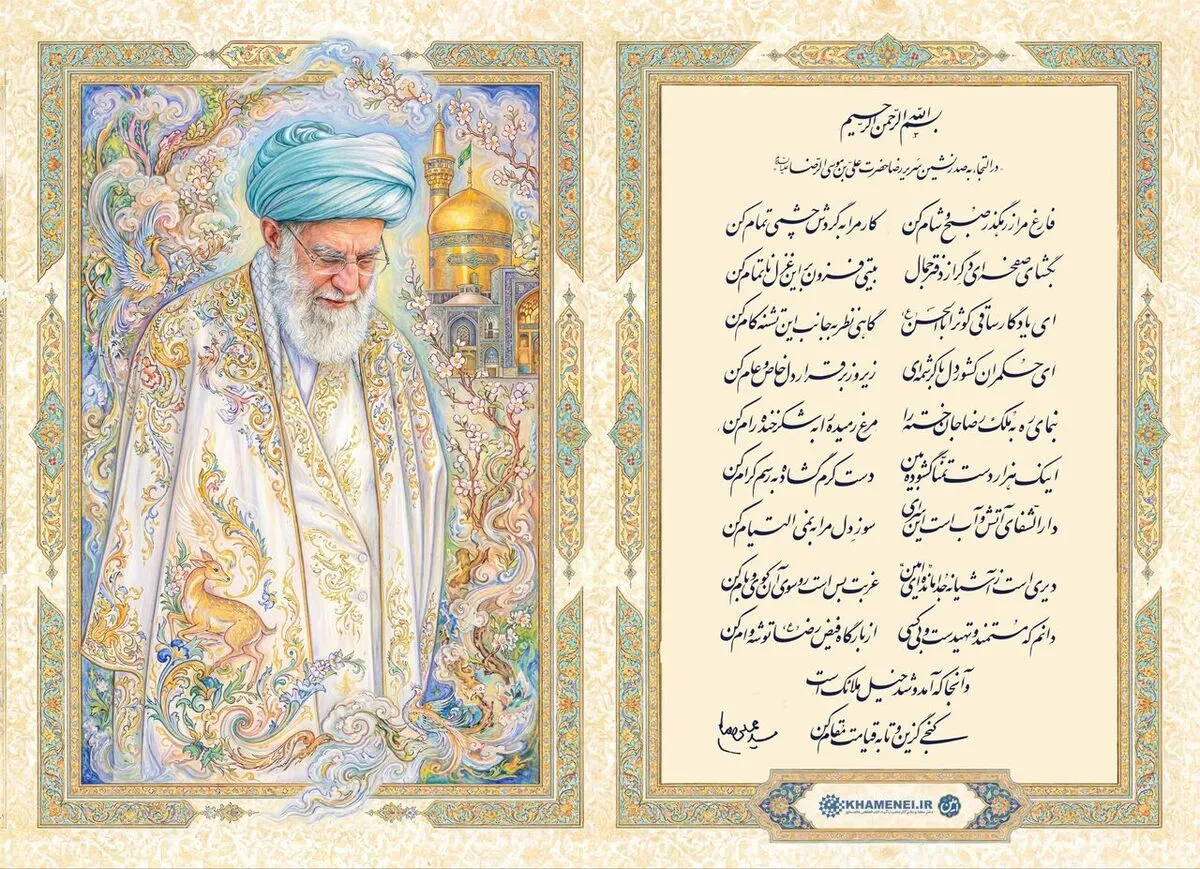 بسم الله الرحمن الرحیم
در التجاء به صدرنشین سریر رضا حضرت علی بن موسی الرضا علیه‌السلام
فارغ مرا ز رهگذر صبح و شام کن کار مرا به گردش چشمی تمام کن
بگشای صفحه‌ای دگر از دفتر جمال بیتی فزون بر این غزل ناتمام کن
ای یادگار ساقی کوثر اباالحسن (ع) گاهی نظر به جانب این تشنه کام کن
ای حکمران کشور دل با کرشمه‌ای زیر و زبر قرار دل خاص و عام کن
بنمای ره به ملک رضا جان خسته را مرغ رمیده را به شکرخنده رام کن
اینک هزار دست تمنا گشوده بین دست کرم گشاده به رسم کرام کن
دارالشفای آتش و آب است این سرای سوز دل مرا به نمی التیام کن
دیری است ز آشیانه جدا مانده‌ای امین غربت بس است رو سوی آن کوی و بام کن
دانم که مستمند و تهیدست و بی‌کسی از بارگاه فیض رضا (ع) توشه وام کن
و آنجا که آمد و شد خیل ملائک است
کنجی گزین و تا به قیامت مقام کن
KHAMENEI.IR